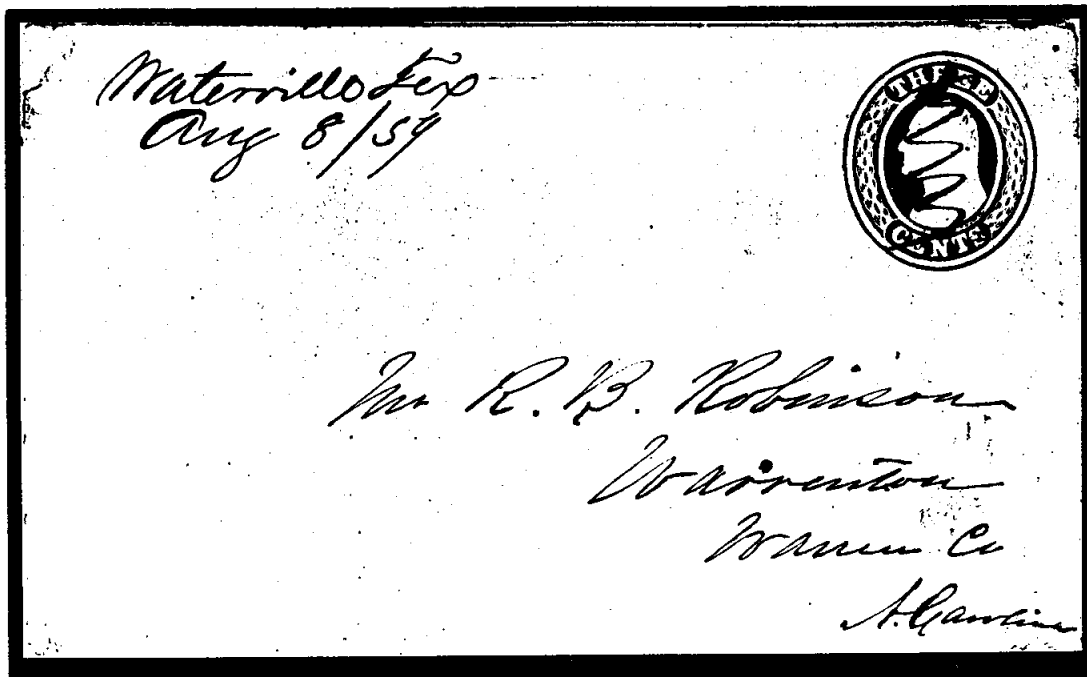 Waterville Tex
Aug 8/59
THREE
CENTS
Mr R. B. Robinson
Warrenton
Warren Co
N. Carolina